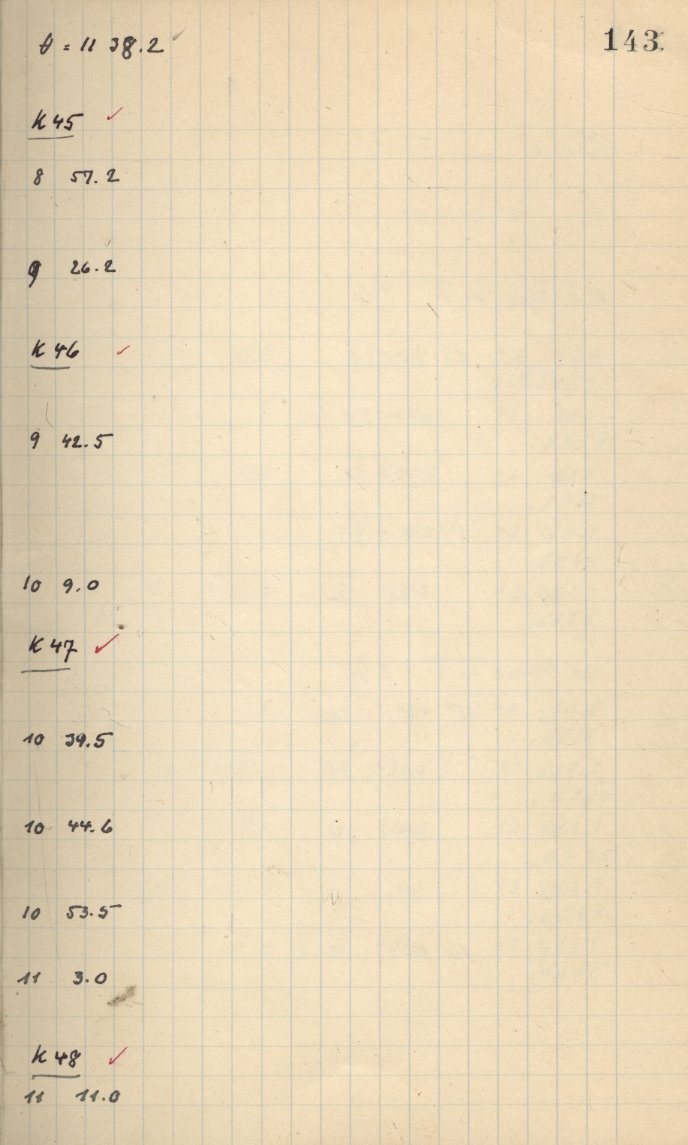 143
θ = 11 38.2
K 45 ✓
8 57.2
9 26.2
K 46 ✓
9 42.5
10 9.0
K 47 ✓
10 39.5
10 44.6
10 53.5
11 3.0
K 48 ✓
11 11.0